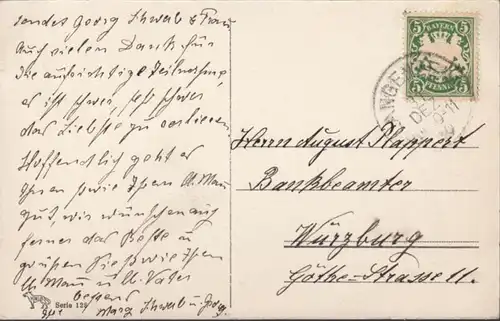 sendet Georg Schwab & Frau
Auch vielen Dank für
die aufrichtige Teilnahme,
es ist schwer, sehr schwer
das Liebste zu verlieren.
Hoffentlich geht es
Ihnen sowie Ihrer
gut, wir wünschen auch
ferner das Beste u
grüßen Sie sowie Ihre
u. Vater
bestens
Marg. Schwab u. Georg.
Serie 128
BAYERN
5 5
PFENNIG
DEZ
9-11
Herrn August Plappert
Bankbeamter
Würzburg
Göthe-Strasse 11.